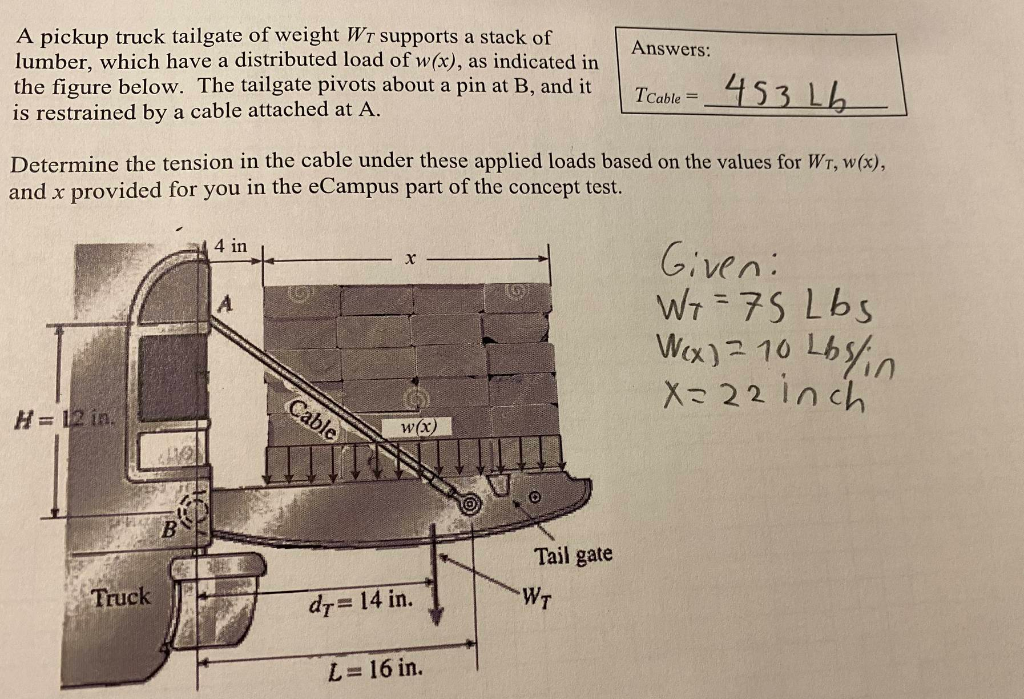 A pickup truck tailgate of weight WT supports a stack of
lumber, which have a distributed load of w(x), as indicated in
the figure below. The tailgate pivots about a pin at B, and it
is restrained by a cable attached at A.
Answers:
TCable = 453 Lb
Determine the tension in the cable under these applied loads based on the values for WT, w(x),
and x provided for you in the eCampus part of the concept test.
4 in
x
A
H = 12 in.
Cable
w(x)
B
Tail gate
Truck
dT = 14 in.
WT
L = 16 in.
Given:
WT = 75 Lbs
W(x) = 10 Lbs/in
X = 22 inch